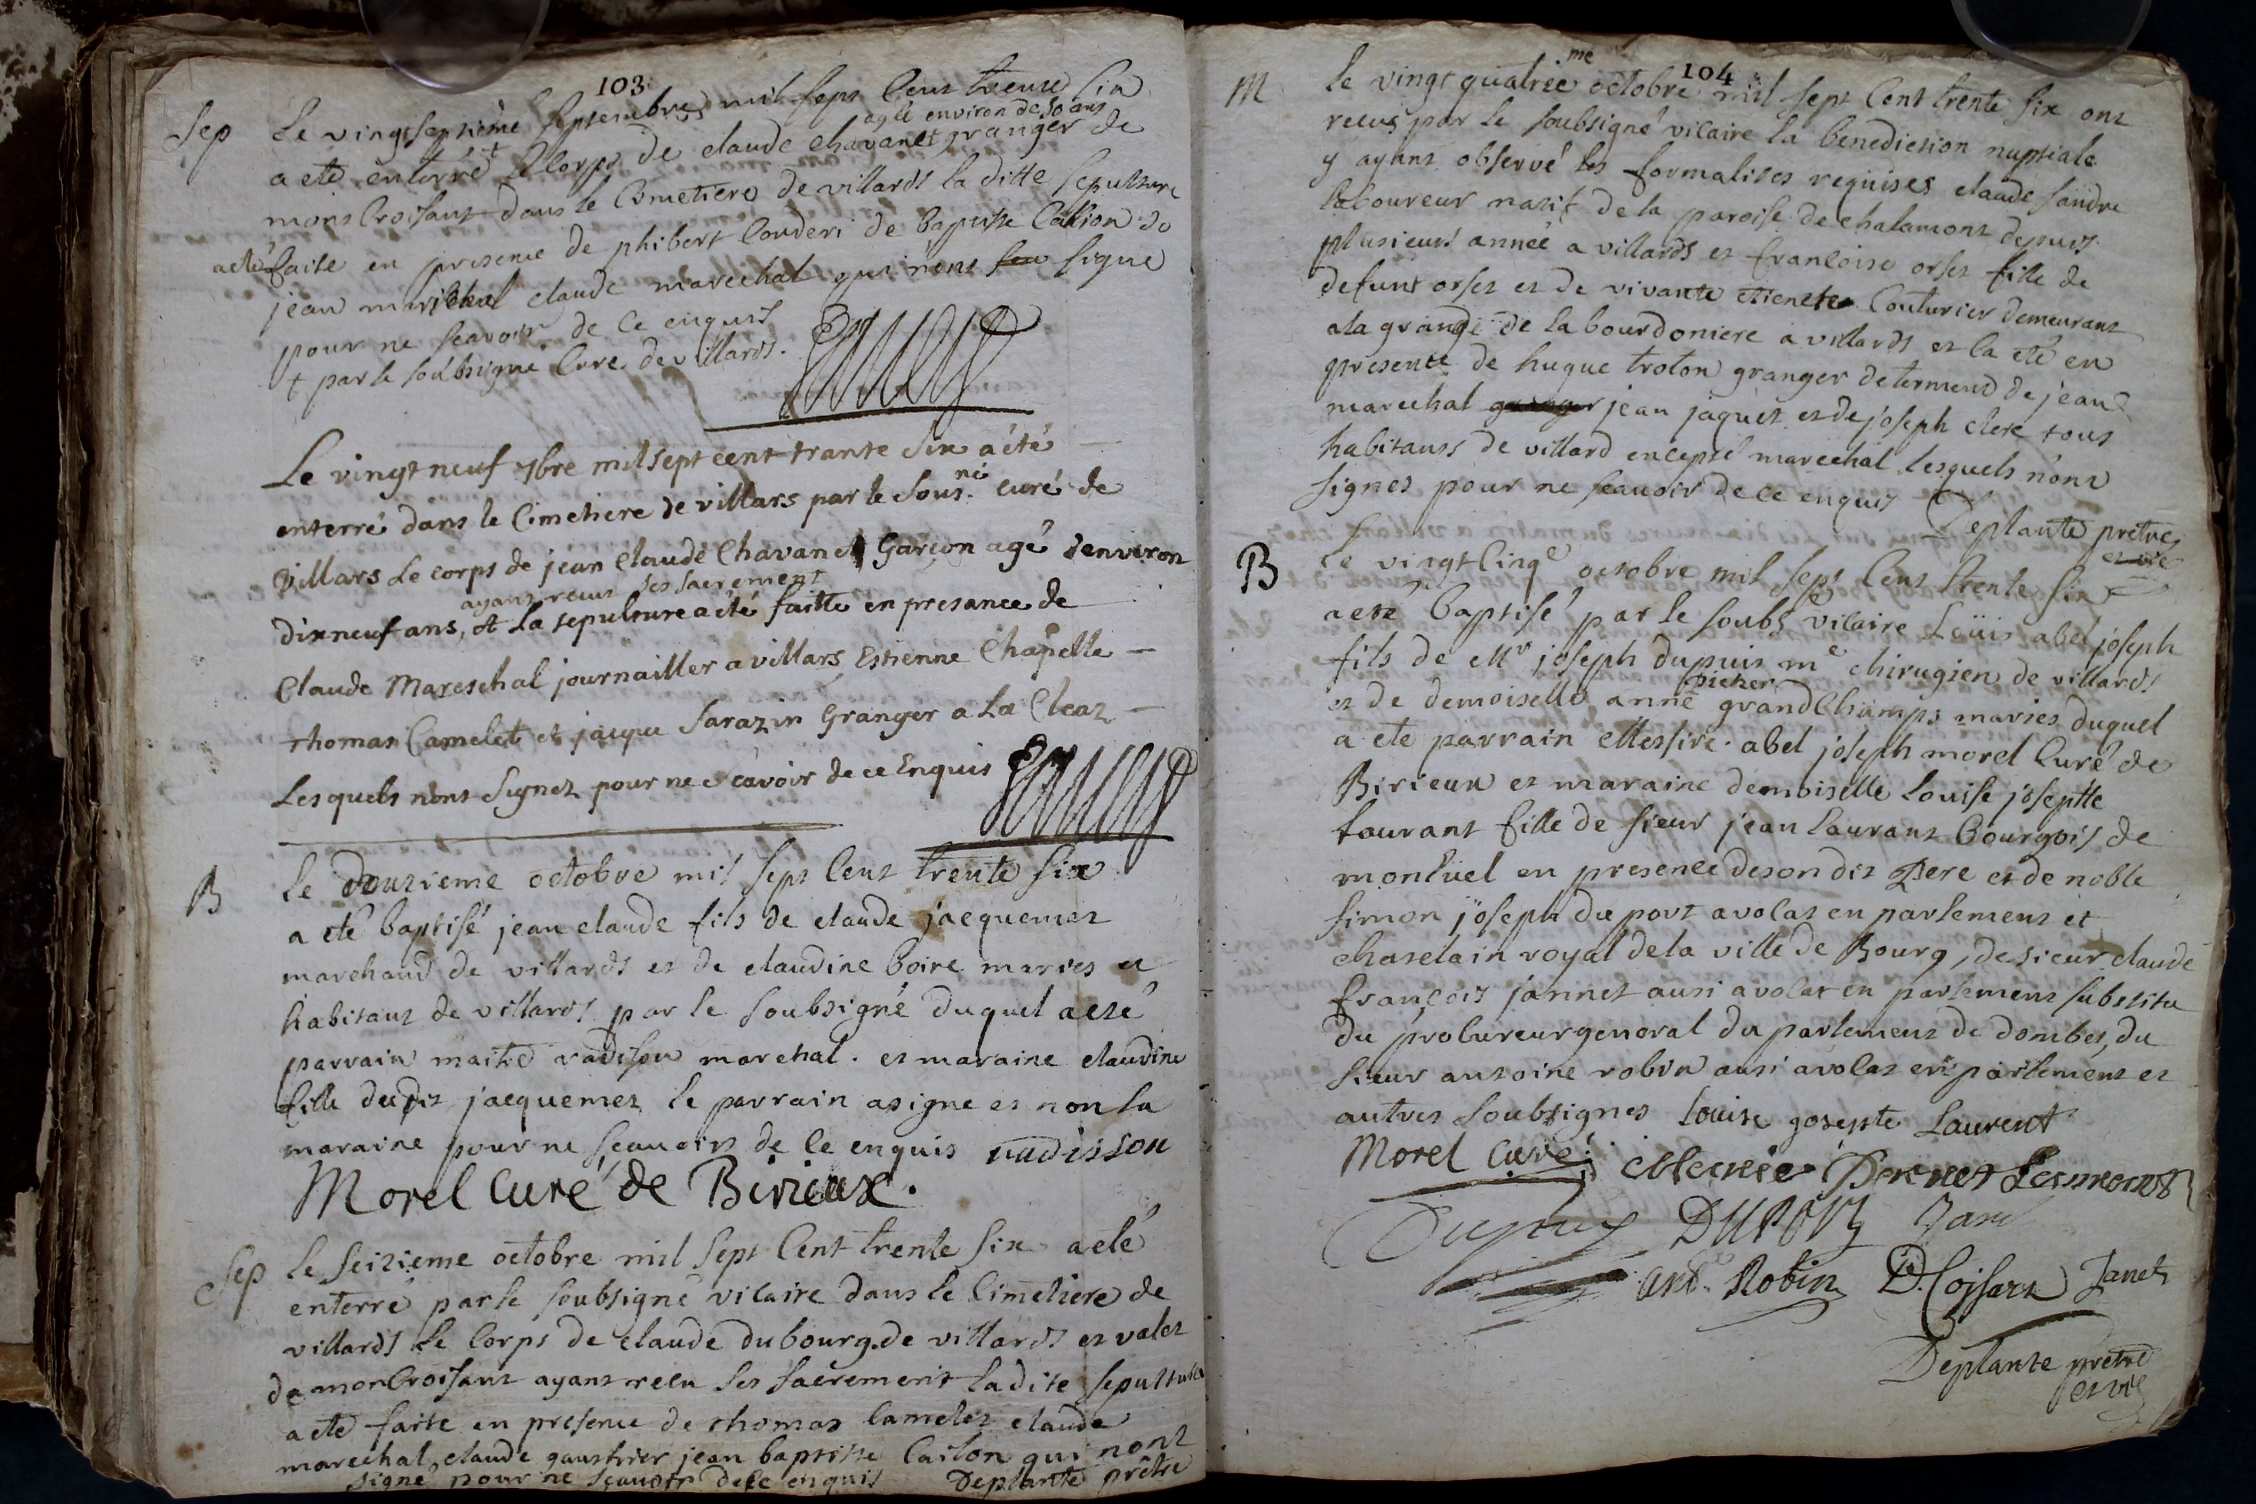 103
Sep le vingtseptieme septembre mil sept cent trente six
agé environ de 50 ans
a eté enterré + le corps de claude chavanet granger de
mont croisant dans le Cimetiere de villards la ditte sepulture
a eté faite en presence de phibert Couderi de baptiste Cation de
jean marechal claude marechal qui n'ont signe
pour ne sçavoir de ce enquis
+ par le soubsigne Cure de villards.
Le vingt neuf 7bre mil sept cent trante Six a été
enterré dans le Cimetiere de villars par le Sous.né curé de
Villars Le corps de jean Claude Chavanet Garçon agé denviron
ayant reçut ses sacrement
dixneuf ans, et La sepulture a été faitte en presance de
Claude Mareschal journailler a villars, Estienne Chapelle
thomas Camelet et jacque Sarazin Granger a La Cleaz
Lesquels nont Signez pour ne sçavoir de ce Enquis
B le douzieme octobre mil sept cent trente six
a eté baptisé jean claude fils de claude jacquemet
marchand de villards et de claudine boire maries et
habitant de villards par le soubsigné duquel a eté
parrain maitre radisson marchal. et maraine claudine
fille dudit jacquemet le parrain a signe et non la
maraine pour ne sçeauoir de ce enquis radisson
Morel Curé de Birieux.
Sep le seizieme octobre mil sept cent trente six a eté
enterré par le soubsigné vicaire dans le Cimetiere de
villards Le Corps de claude dubourg de villards et valet
de mon Croisant ayant recu ses sacrement ladite sepulture
a eté faite en presence de thomas Camelet claude
marechal, claude gauthier jean baptiste Caiton qui nont
signé pour ne sçeauoir de ce enquis Deplante prêtre
104
M le vingt quatriéme octobre mil sept cent trente six ont
recus par le soubsigné vicaire la benediction nuptiale
y ayant observé les formalites requises claude sandre
laboureur natif de la paroise de chalamont depuis
plusieurs année a villards et francoise orset fille de
defunt orset et de vivante etienette Couturier demeurant
a la grange de la bourdoniere a villards et la eté en
presence de hugue troton granger de termend de jean
marechal granger jean jaquet et de joseph clerc tous
habitants de villard excepté marechal lesquels n'ont
signes pour ne sçeauoir de ce enquis
Deplante prêtre
et vic
B Le vingt Cinqe octobre mil sept cent trente six
a eté baptisé par le soubs vicaire Loüis abel joseph
fils de Mr joseph dupuis me chirugien de villards
et de demoiselle anne grandChamps maries duquel
a eté parrain Messire abel joseph morel Curé de
Birieux et maraine demoiselle Louise josephte
Laurant fille de sieur jean Laurant bourgois de
monluel en presence de son dit Pere et de noble
simon joseph du port avocat en parlement et
chatelain royal de la ville de Bourg, de sieur claude
françois jannet ausi avocat en parlement substitu
du procureur general du parlement de dombes, du
sieur antoine robin ausi avocat en parlement et
autres soubsignes Louise gosepte Laurent
Morel Curé
Dupuis DUPORT
ant. Robin D. Coissard Janet
Deplante prêtre
et vic